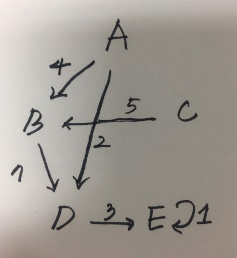 A
4
B 5 C
2
D 3 E 1